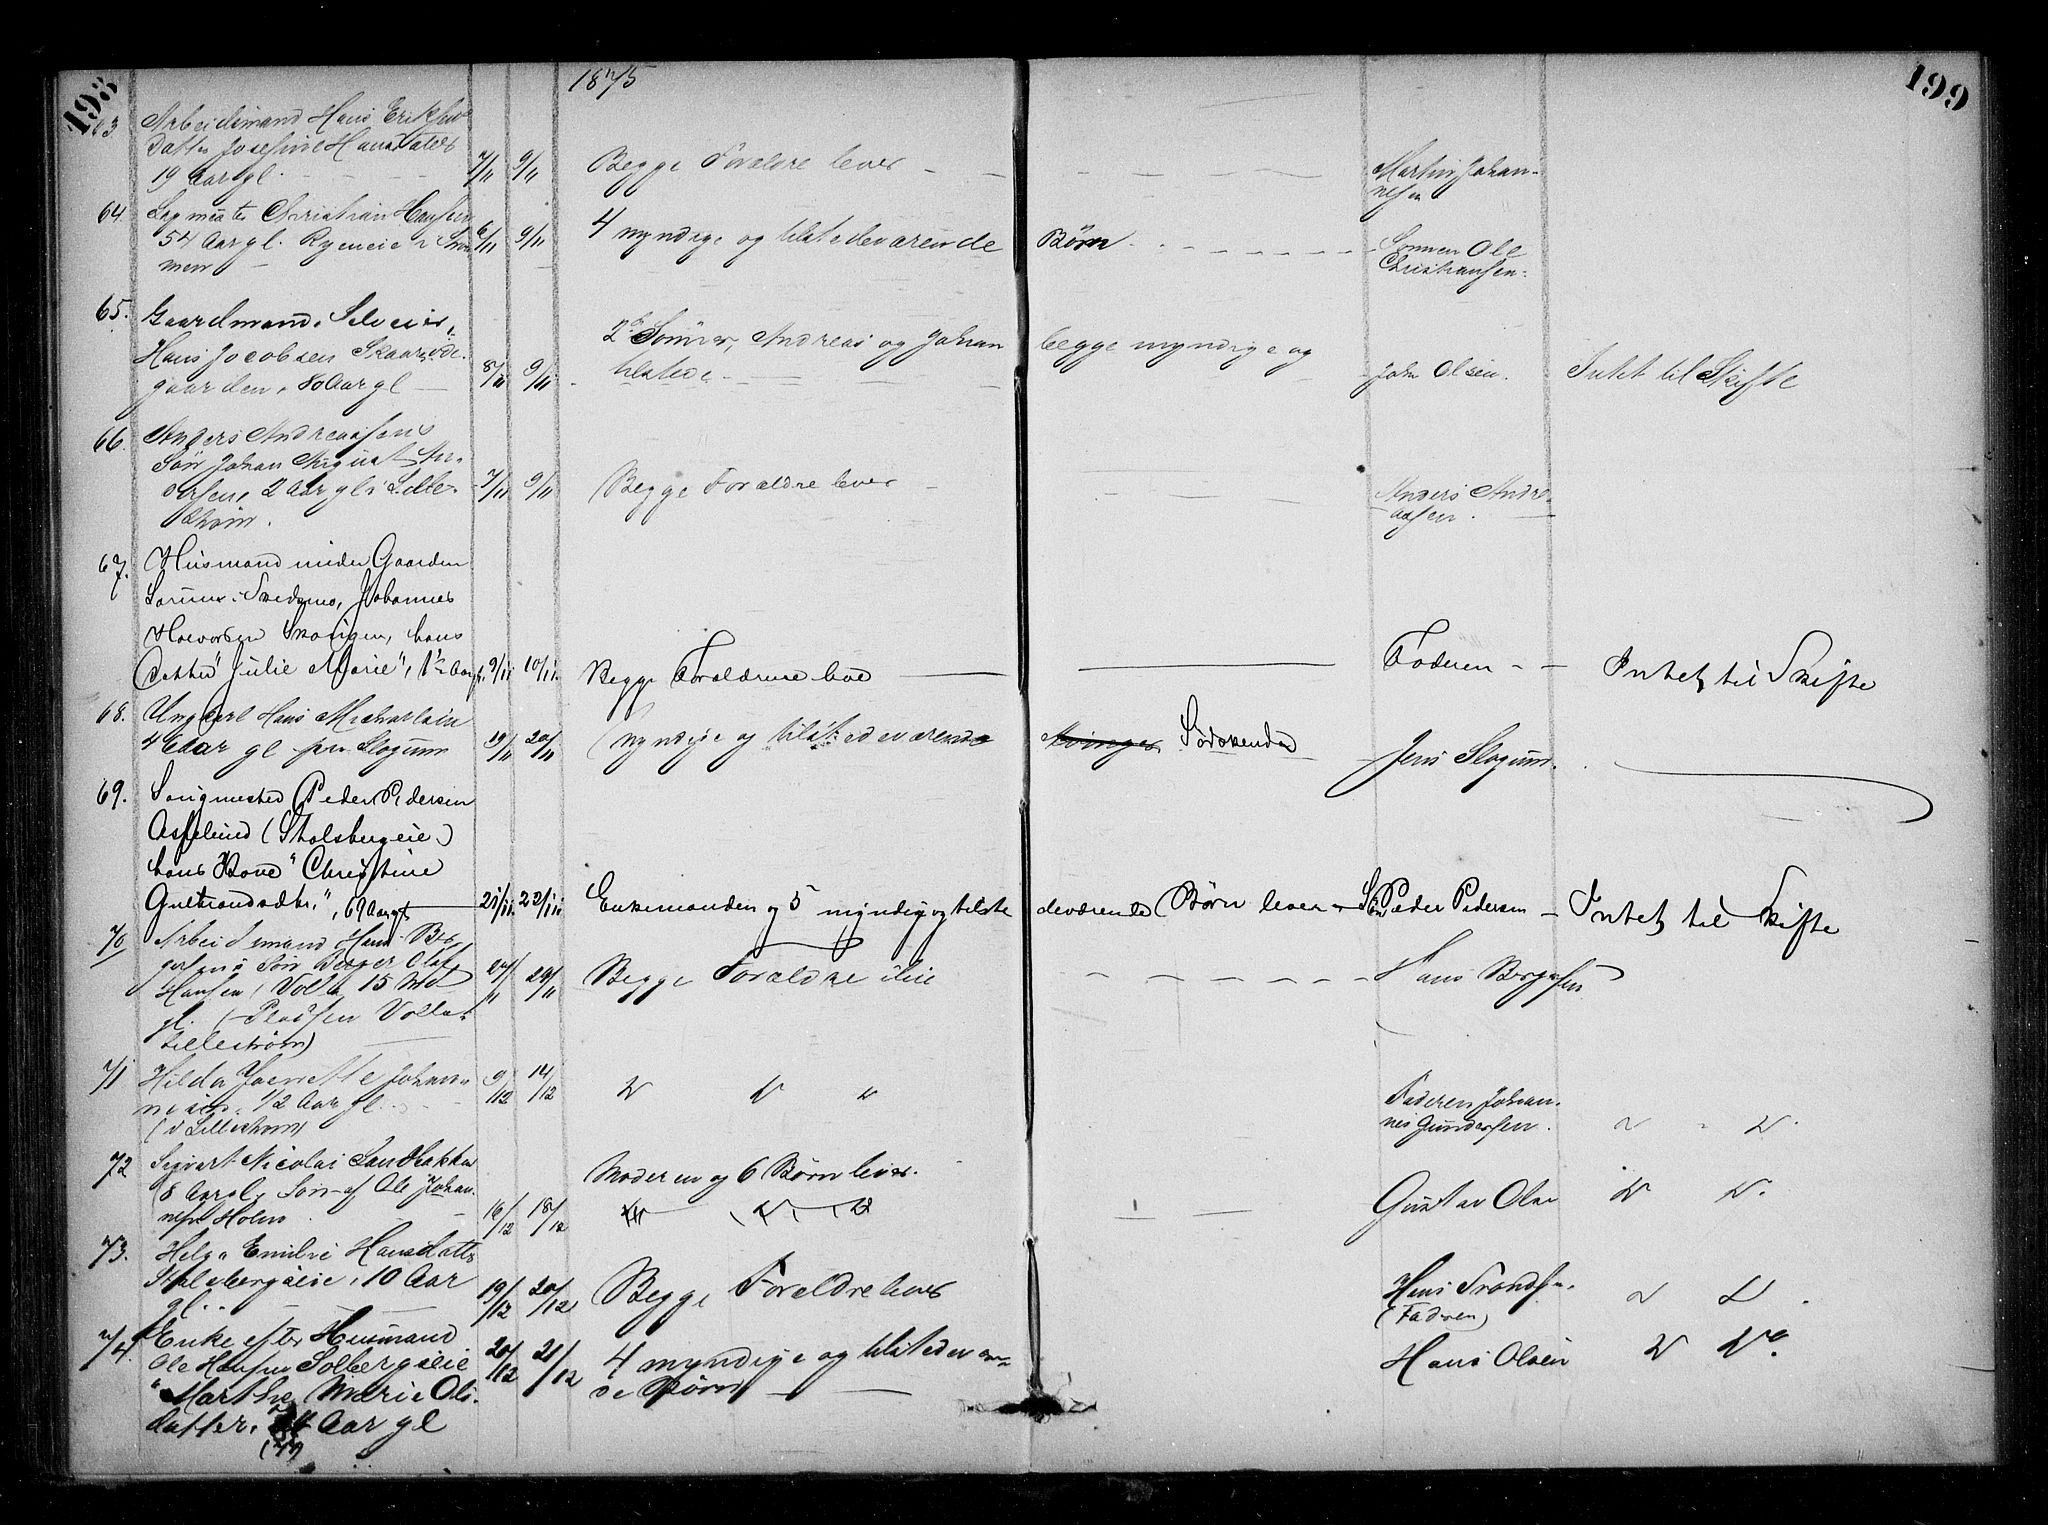 198
199
1875
63
Arbeidsmand Hans Eriksens
Datter Josefine Hansdatter
19 Aar gl.
7/11 9/11
Begge Forældre lever
Martin Johan-
nesen
64.
Christian Hansen
54 Aar gl.
6/11 9/11
4 myndige og tilstedeværende Børn
Sønnen Ole
Christiansen.
65.
Gaardmand, Selveier,
Hans Jacobsen Skaarer øde-
gaarden, 80 Aar gl
8/11 9/11
2de Sønner, Andreas og Johan begge myndige og
tilstede
John Olsen.
Intet til Skifte
66
Anders Andreassens
Søn Johan August An-
dersen, 2 Aar gl i Lille-
strøm.
7/11 9/11
Begge Forældre lever
Anders Andre-
asen
67.
Husmand under Gaarden
Sørum i Skedsmo, Johannes
Halvorsen Skougen, hans
Datter "Julie Marie", 1½ Aar gl.
9/11 10/11.
Begge Forældrene leve
Faderen
Intet til Skifte
68.
Ungkarl Hans
Aar gl paa Slogum
19/11 20/11
Myndige og tilstedeværende Arvinger Sødskende
Jens Slogum.
69.
Peder Pedersen
Asplund (Stalsbergeie)
hans Kone "Christine
Gulbrandsdtr.", 69 Aar gl
21/11. 22/11
Enkemanden og 5 myndig og tilstedeværende Børn lever
Søn Peder Pedersen
Intet til Skifte
70
Arbeidsmand Hans Ber-
gersens Søn Berger Olaf
Hansen, Volla 15 Md
gl. (Pladsen Volla-
Lillestrøm)
24/11 29/11
Begge Forældre i live
Hans Bergersen
71
Hilda Johan-
nesen, 1/2 Aar gl.
(i Lillestrøm)
9/12 14/12
Faderen Johan-
nes Gundersen.
72
Sigvart Nicolai Sandbakken
8 Aar gl, Søn af Ole Johan-
nesen Holms
16/12 18/12
Moderen og 6 Børn lever.
Gustav Olsen
73.
Helga Emilie Hansdatter
Stalsbergeie, 10 Aar
gl.
19/12 20/12
Begge Forældre lever
Hans Trondsen.
(Faderen)
74.
Enke efter Husmand
Ole Hansen Solbergseie
"Marthe Marie Ols-
datter, Aar gl
(77)
20/12 21/12
4 myndige og tilstedeværen-
de Børn
Hans Olsen